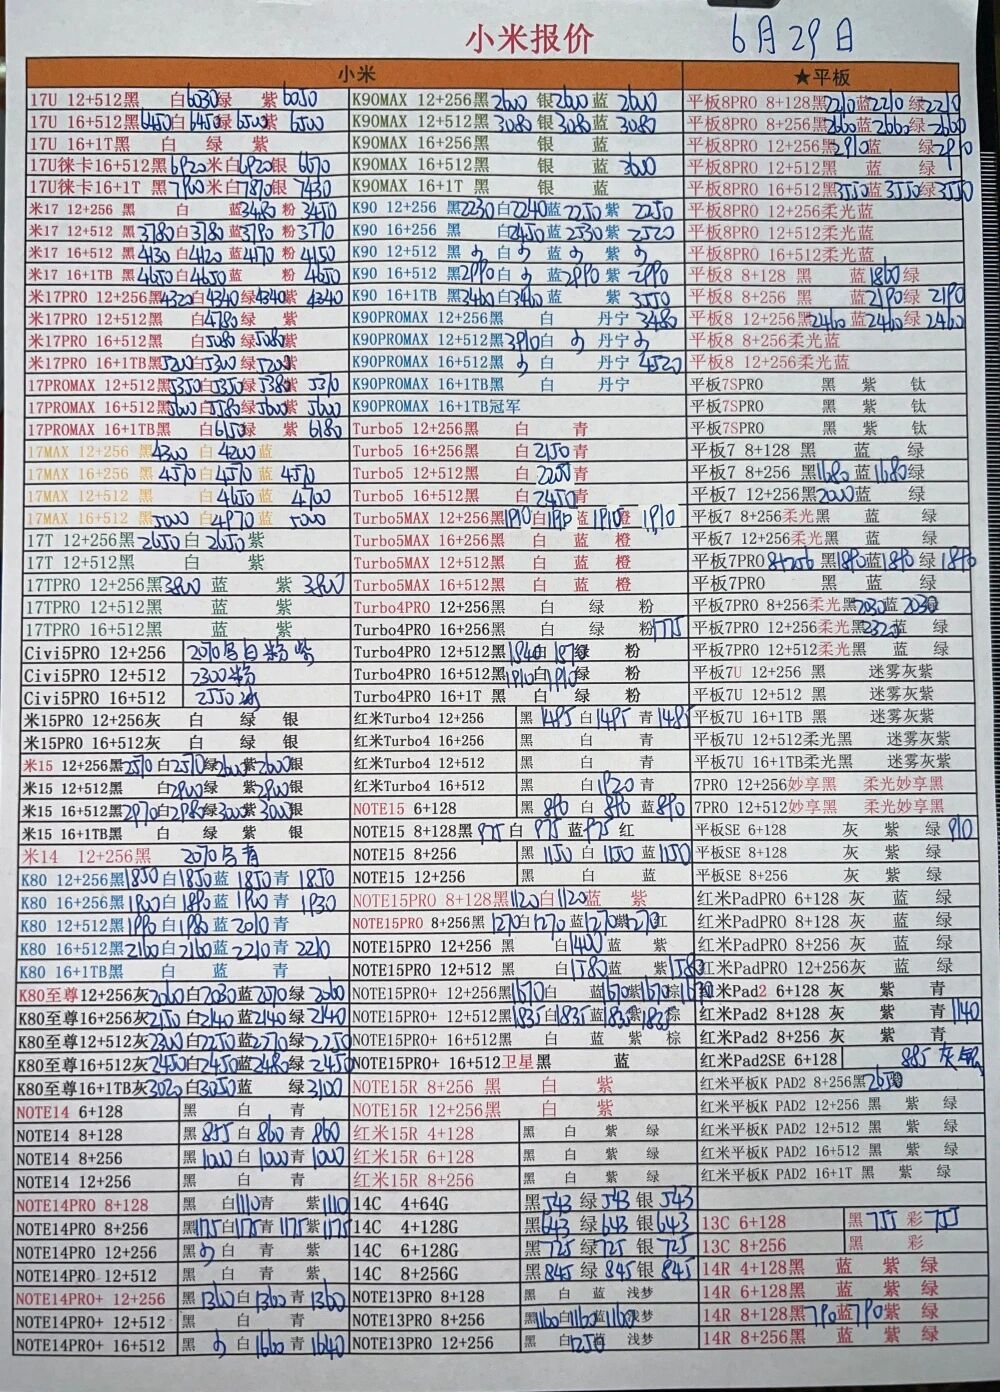 小米报价 6月29日
小米
17U 12+512黑 白6030绿 紫6050
17U 16+512黑6450白6450绿6500紫6500
17U 16+1T黑 白 绿 紫
17U徕卡16+512黑6920米白6920银6670
17U徕卡16+1T 黑7960米白7870银7430
米17 12+256 黑 白 蓝3480 粉3450
米17 12+512 黑3780白3780蓝3790粉3770
米17 16+512 黑4130白4120蓝4170粉4150
米17 16+1TB黑4650白4650蓝 粉4650
米17PRO 12+256黑4320白4340绿4340紫4340
米17PRO 12+512黑 白4780绿 紫
米17PRO 16+512黑 白5080绿5080紫
米17PRO 16+1TB黑5200白5300绿5200紫
17PROMAX 12+512黑5350白5350绿5380紫5370
17PROMAX 16+512黑5600白5580绿5600紫5600
17PROMAX 16+1TB黑 白6150绿 紫6180
17MAX 12+256 黑4300 白4200蓝
17MAX 16+256 黑4570白4570蓝4570
17MAX 12+512 黑 白4650蓝 4700
17MAX 16+512 黑5000白4970蓝5000
17T 12+256黑2650白2650紫
17T 12+512黑 白 紫
17TPRO 12+256黑3800 蓝 紫3800
17TPRO 12+512黑 蓝 紫
17TPRO 16+512黑 蓝 紫
Civi5PRO 12+256 2070乌白粉紫
Civi5PRO 12+512 2300粉
Civi5PRO 16+512 2550
米15PRO 12+256灰 白 绿 银
米15PRO 16+512灰 白 绿 银
米15 12+256黑2570白2570绿2600紫2600银
米15 12+512黑 白2800绿 紫2800银
米15 16+512黑2970白2980绿3000紫3000银
米15 16+1TB黑 白 绿 紫 银
米14 12+256黑 2070乌青
K80 12+256黑1850白1850蓝1850青1850
K80 16+256黑1900白1890蓝1900青1930
K80 12+512黑1990白1980蓝2010青
K80 16+512黑2160白2160蓝2210青2210
K80 16+1TB黑 白 蓝 青
K80至尊12+256灰2060白2030蓝2070绿2060
K80至尊16+256灰2150白2140蓝2140绿2140
K80至尊12+512灰2300白2250蓝2270绿2250
K80至尊16+512灰2450白2450蓝2480绿2450
K80至尊16+1TB灰3020白3050蓝 绿3100
NOTE14 6+128 黑 白 青
NOTE14 8+128 黑855白860青860
NOTE14 8+256 黑1000白1000青1000
NOTE14 12+256 黑 白 青
NOTE14PRO 8+128 黑 白1110青 紫1110
NOTE14PRO 8+256 黑1175白1175青1175紫1175
NOTE14PRO 12+256 黑 白 青 紫
NOTE14PRO 12+512 黑 白 青 紫
NOTE14PRO+ 12+256 黑1360白1360青1360
NOTE14PRO+ 12+512 黑 白 青
NOTE14PRO+ 16+512 黑 白1660青1640
K90MAX 12+256黑2600银2600蓝2600
K90MAX 12+512黑3080银3080蓝3080
K90MAX 16+256黑 银 蓝
K90MAX 16+512黑 银 蓝3600
K90MAX 16+1T 黑 银 蓝
K90 12+256 黑2230白2240蓝2250紫2250
K90 16+256 黑 白2450蓝2530紫2520
K90 12+512 黑 白 蓝 紫
K90 16+512 黑2990白 蓝2990紫2990
K90 16+1TB黑3460白3460蓝 紫3550
K90PROMAX 12+256黑 白 丹宁3480
K90PROMAX 12+512黑3910白 丹宁
K90PROMAX 16+512黑 白 丹宁4520
K90PROMAX 16+1TB黑 白 丹宁
K90PROMAX 16+1TB冠军
Turbo5 12+256黑 白 青
Turbo5 16+256黑 白2150青
Turbo5 12+512黑 白2200青
Turbo5 16+512黑 白2450青
Turbo5MAX 12+256黑1910白1910蓝1910橙1910
Turbo5MAX 16+256黑 白 蓝 橙
Turbo5MAX 12+512黑 白 蓝 橙
Turbo5MAX 16+512黑 白 蓝 橙
Turbo4PRO 12+256黑 白 绿 粉
Turbo4PRO 16+256黑 白 绿 粉1775
Turbo4PRO 12+512黑1840白1870绿 粉
Turbo4PRO 16+512黑1910白1910绿 粉
Turbo4PRO 16+1T 黑 白 绿 粉
红米Turbo4 12+256 黑1485白1485青1485
红米Turbo4 16+256 黑 白 青
红米Turbo4 12+512 黑 白 青
红米Turbo4 16+512 黑 白1920青
NOTE15 6+128 黑890白890蓝890
NOTE15 8+128黑975白975蓝975红
NOTE15 8+256 黑1150白1150蓝1150
NOTE15 12+256 黑 白 蓝
NOTE15PRO 8+128黑1120白1120蓝 紫
NOTE15PRO 8+256黑1270白1270蓝1270紫1270红
NOTE15PRO 12+256 黑 白1400蓝 紫
NOTE15PRO 12+512 黑 白1580蓝 紫1580
NOTE15PRO+ 12+256黑1670白 蓝1670紫1670棕1670
NOTE15PRO+ 12+512黑1835白1835蓝1835紫1835棕
NOTE15PRO+ 16+512黑 白 蓝 紫 棕
NOTE15PRO+ 16+512卫星黑 蓝
NOTE15R 8+256 黑 白 紫
NOTE15R 12+256黑 白 紫
红米15R 4+128 黑 白 紫 绿
红米15R 6+128 黑 白 紫 绿
红米15R 8+256 黑 白 紫 绿
14C 4+64G 黑543绿543银543
14C 4+128G 黑643绿643银643
14C 6+128G 黑725绿725银725
14C 8+256G 黑845绿845银845
NOTE13PRO 8+128 黑 白 蓝 浅梦
NOTE13PRO 8+256 黑1160白1160蓝1160浅梦
NOTE13PRO 12+256 黑 白1250蓝 浅梦
★平板
平板8PRO 8+128黑2210蓝2210绿2210
平板8PRO 8+256黑2660蓝2660绿2660
平板8PRO 12+256黑2910蓝 绿2910
平板8PRO 12+512黑 蓝 绿
平板8PRO 16+512黑3550蓝3550绿3550
平板8PRO 12+256柔光蓝
平板8PRO 12+512柔光蓝
平板8PRO 16+512柔光蓝
平板8 8+128 黑 蓝1860绿
平板8 8+256 黑 蓝2190绿2190
平板8 12+256黑2460蓝2460绿2460
平板8 8+256柔光蓝
平板8 12+256柔光蓝
平板7SPRO 黑 紫 钛
平板7SPRO 黑 紫 钛
平板7SPRO 黑 紫 钛
平板7 8+128 黑 蓝 绿
平板7 8+256 黑1680蓝1680绿
平板7 12+256黑2000蓝 绿
平板7 8+256柔光黑 蓝 绿
平板7 12+256柔光黑 蓝 绿
平板7PRO 8+256 黑1890蓝1890绿1890
平板7PRO 黑 蓝 绿
平板7PRO 8+256柔光黑2030蓝2030绿
平板7PRO 12+256柔光黑2320蓝 绿
平板7PRO 12+512柔光黑 蓝 绿
平板7U 12+256 黑 迷雾灰紫
平板7U 12+512 黑 迷雾灰紫
平板7U 16+1TB 黑 迷雾灰紫
平板7U 12+512柔光黑 迷雾灰紫
平板7U 16+1TB柔光黑 迷雾灰紫
7PRO 12+256妙享黑 柔光妙享黑
7PRO 12+512妙享黑 柔光妙享黑
平板SE 6+128 灰 紫 绿910
平板SE 8+128 灰 紫 绿
平板SE 8+256 灰 紫 绿
红米PadPRO 6+128 灰 蓝 绿
红米PadPRO 8+128 灰 蓝 绿
红米PadPRO 8+256 灰 蓝 绿
红米PadPRO 12+256灰 蓝 绿
红米Pad2 6+128 灰 紫 青
红米Pad2 8+128 灰 紫 青1140
红米Pad2 8+256 灰 紫 青
红米Pad2SE 6+128 885灰
红米平板K PAD2 8+256黑2650紫
红米平板K PAD2 12+256 黑 紫 绿
红米平板K PAD2 12+512 黑 紫 绿
红米平板K PAD2 16+512 黑 紫 绿
红米平板K PAD2 16+1T 黑 紫 绿
13C 6+128 黑755彩755
13C 8+256 黑 彩
14R 4+128黑 蓝 紫 绿
14R 6+128黑 蓝 紫 绿
14R 8+128黑790蓝790紫 绿
14R 8+256黑 蓝 紫 绿